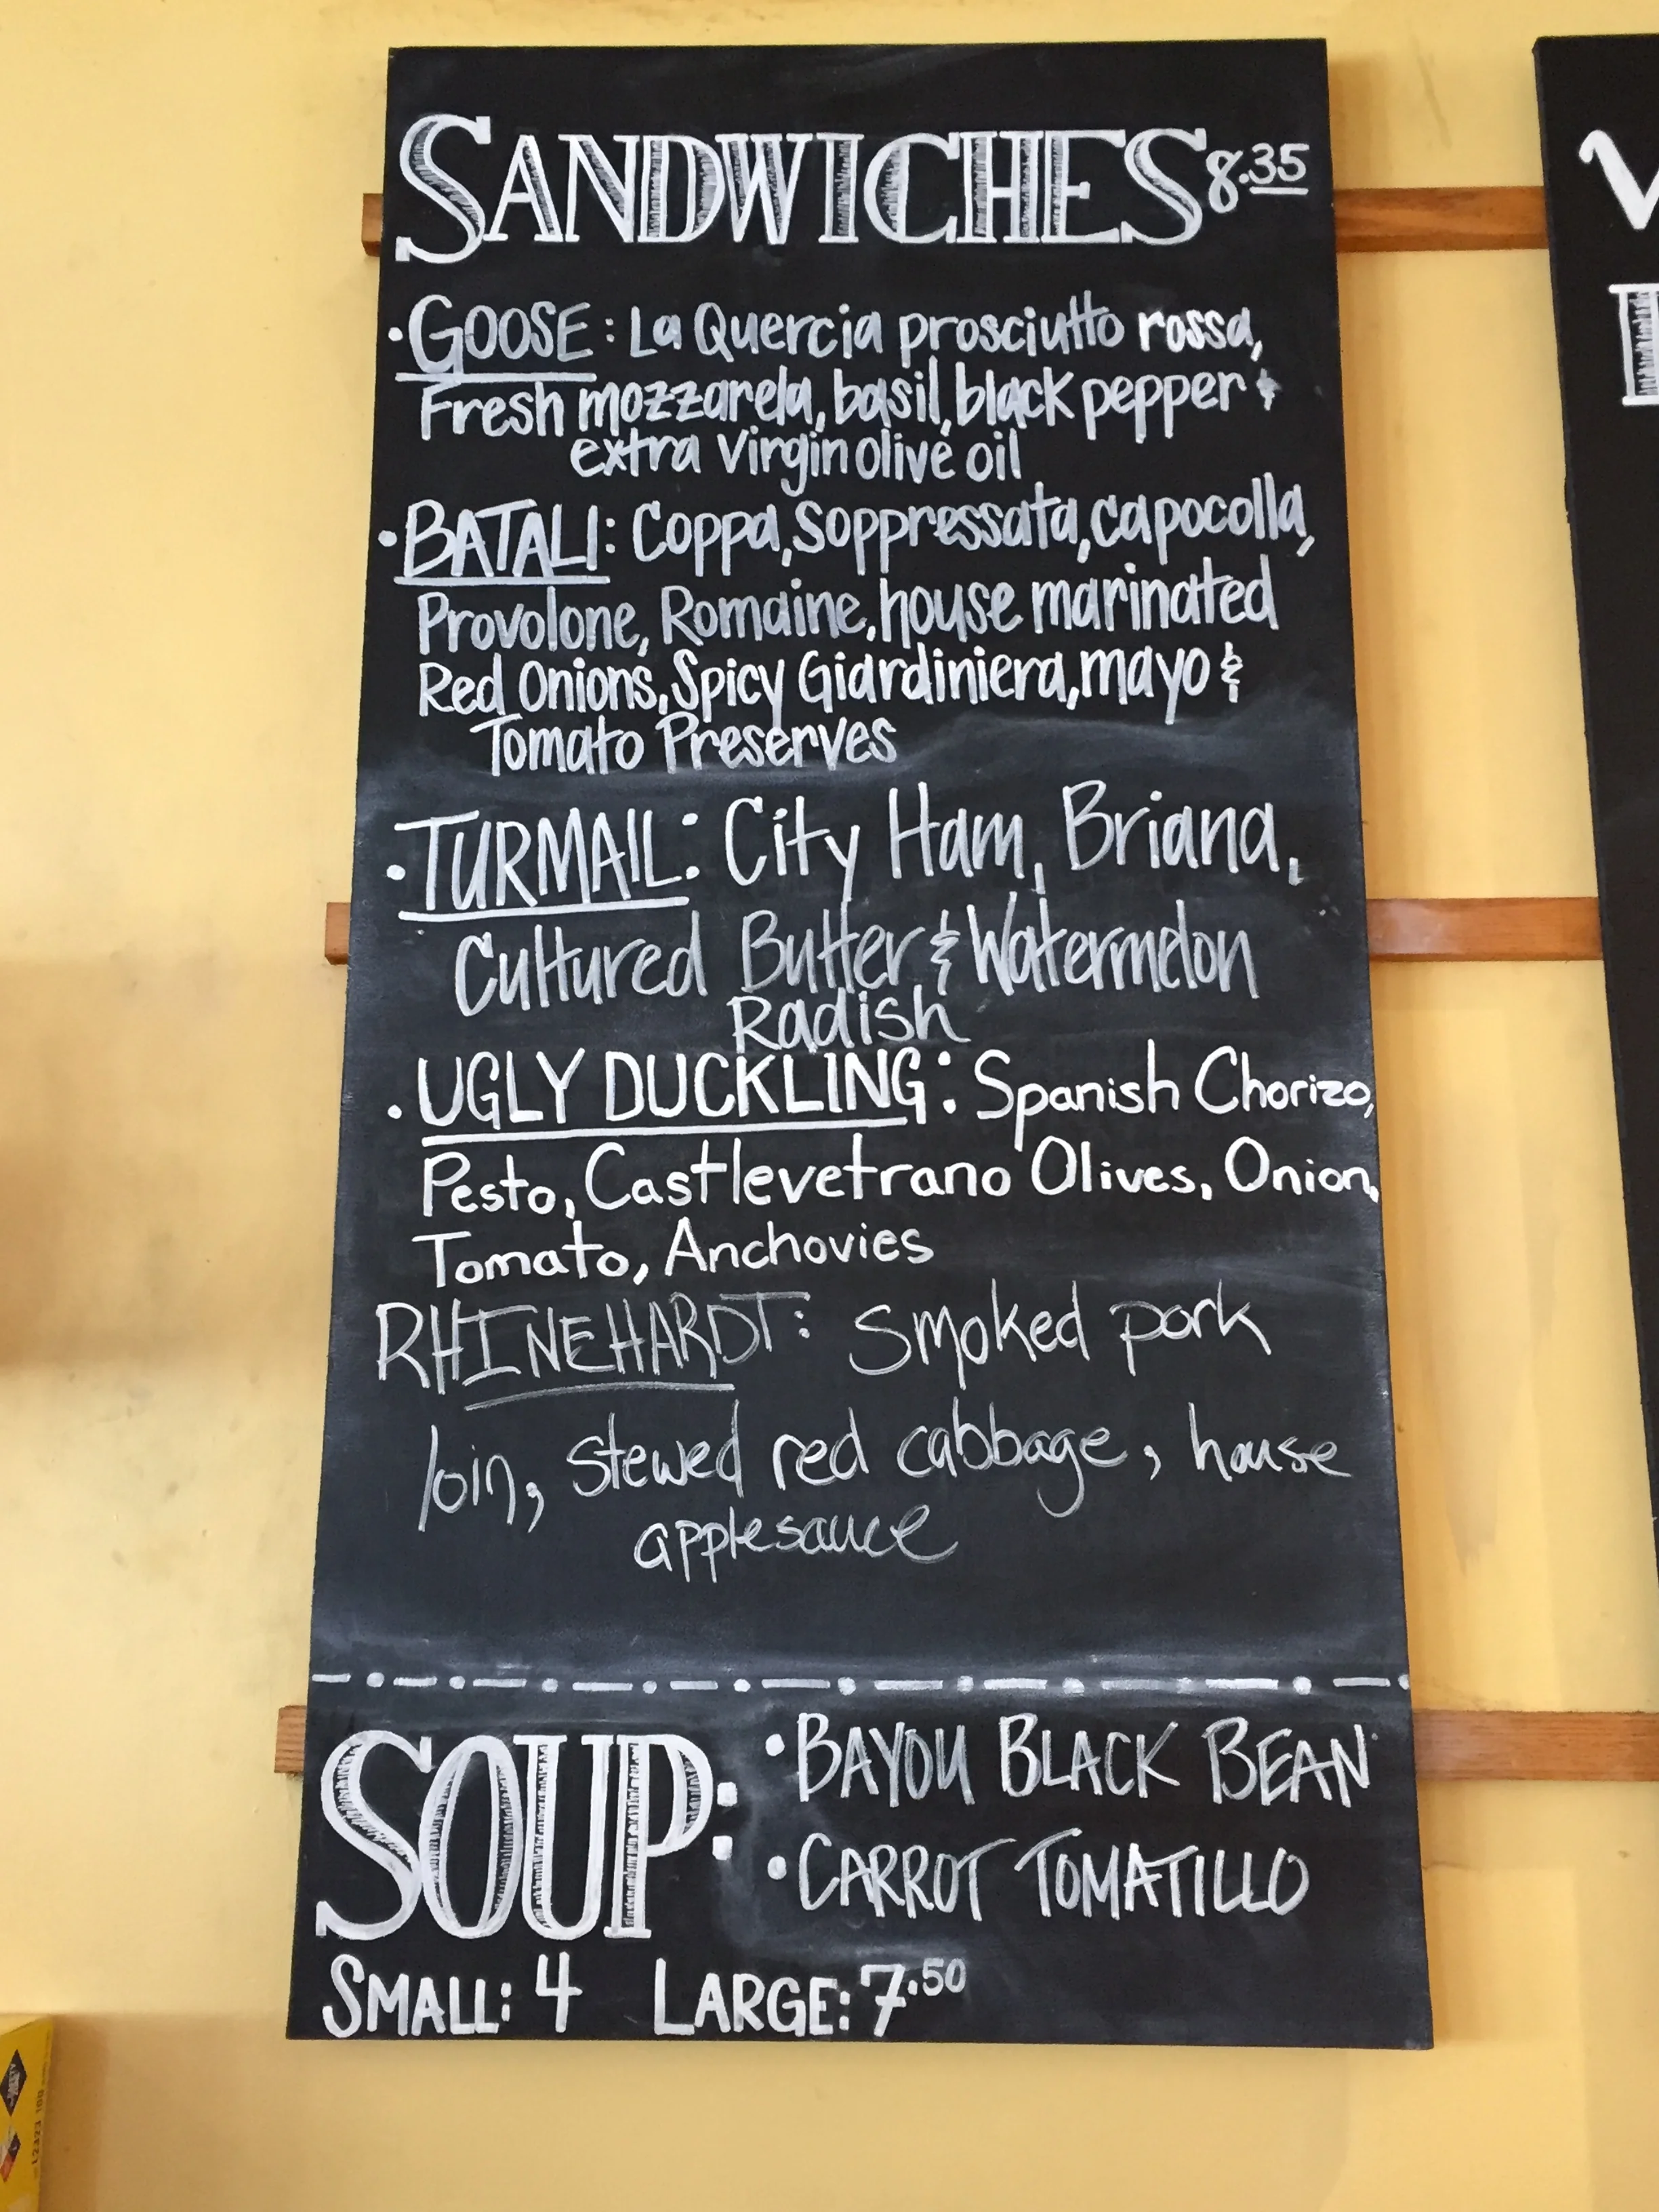 SANDWICHES 8.35
• GOOSE: La Quercia prosciutto rossa,
Fresh mozzarela, basil, black pepper &
extra virgin olive oil
• BATALI: Coppa, Soppressata, capocolla,
Provolone, Romaine, house marinated
Red Onions, Spicy Giardiniera, mayo &
Tomato Preserves
• TURMAIL: City Ham, Briana,
Cultured Butter & Watermelon
Radish
• UGLY DUCKLING: Spanish Chorizo,
Pesto, Castlevetrano Olives, Onion,
Tomato, Anchovies
RHINEHARDT: Smoked pork
loin, stewed red cabbage, house
applesauce
SOUP:
• BAYOU BLACK BEAN
• CARROT TOMATILLO
SMALL: 4 LARGE: 7.50